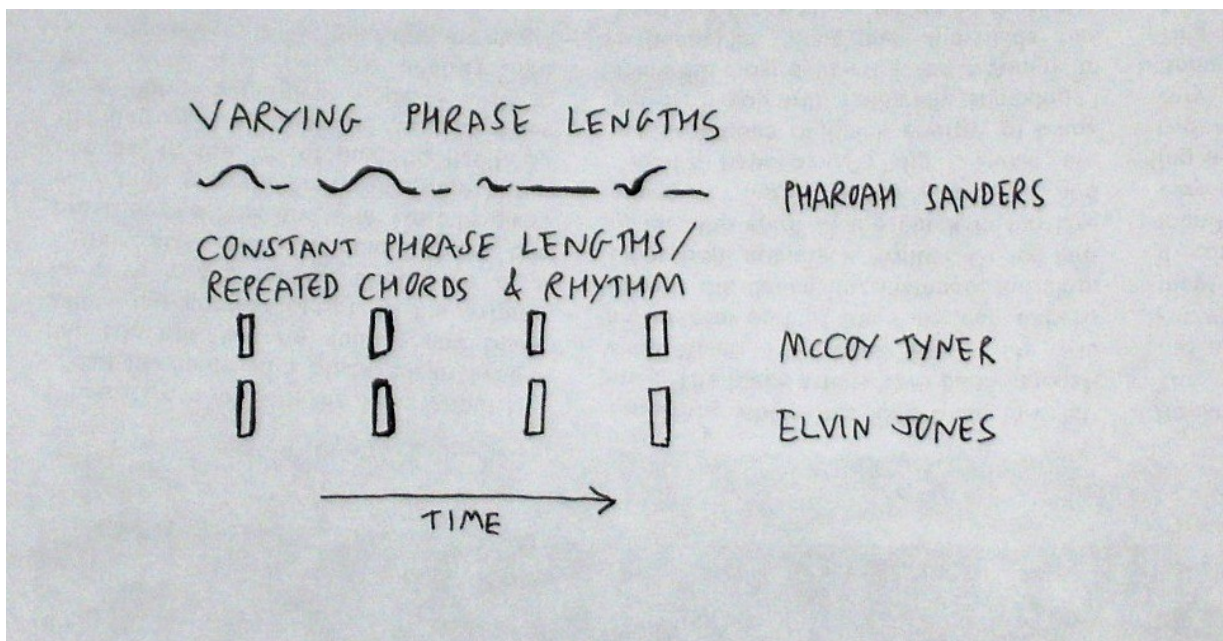 VARYING PHRASE LENGTHS
PHAROAH SANDERS
CONSTANT PHRASE LENGTHS/
REPEATED CHORDS & RHYTHM
McCOY TYNER
ELVIN JONES
TIME